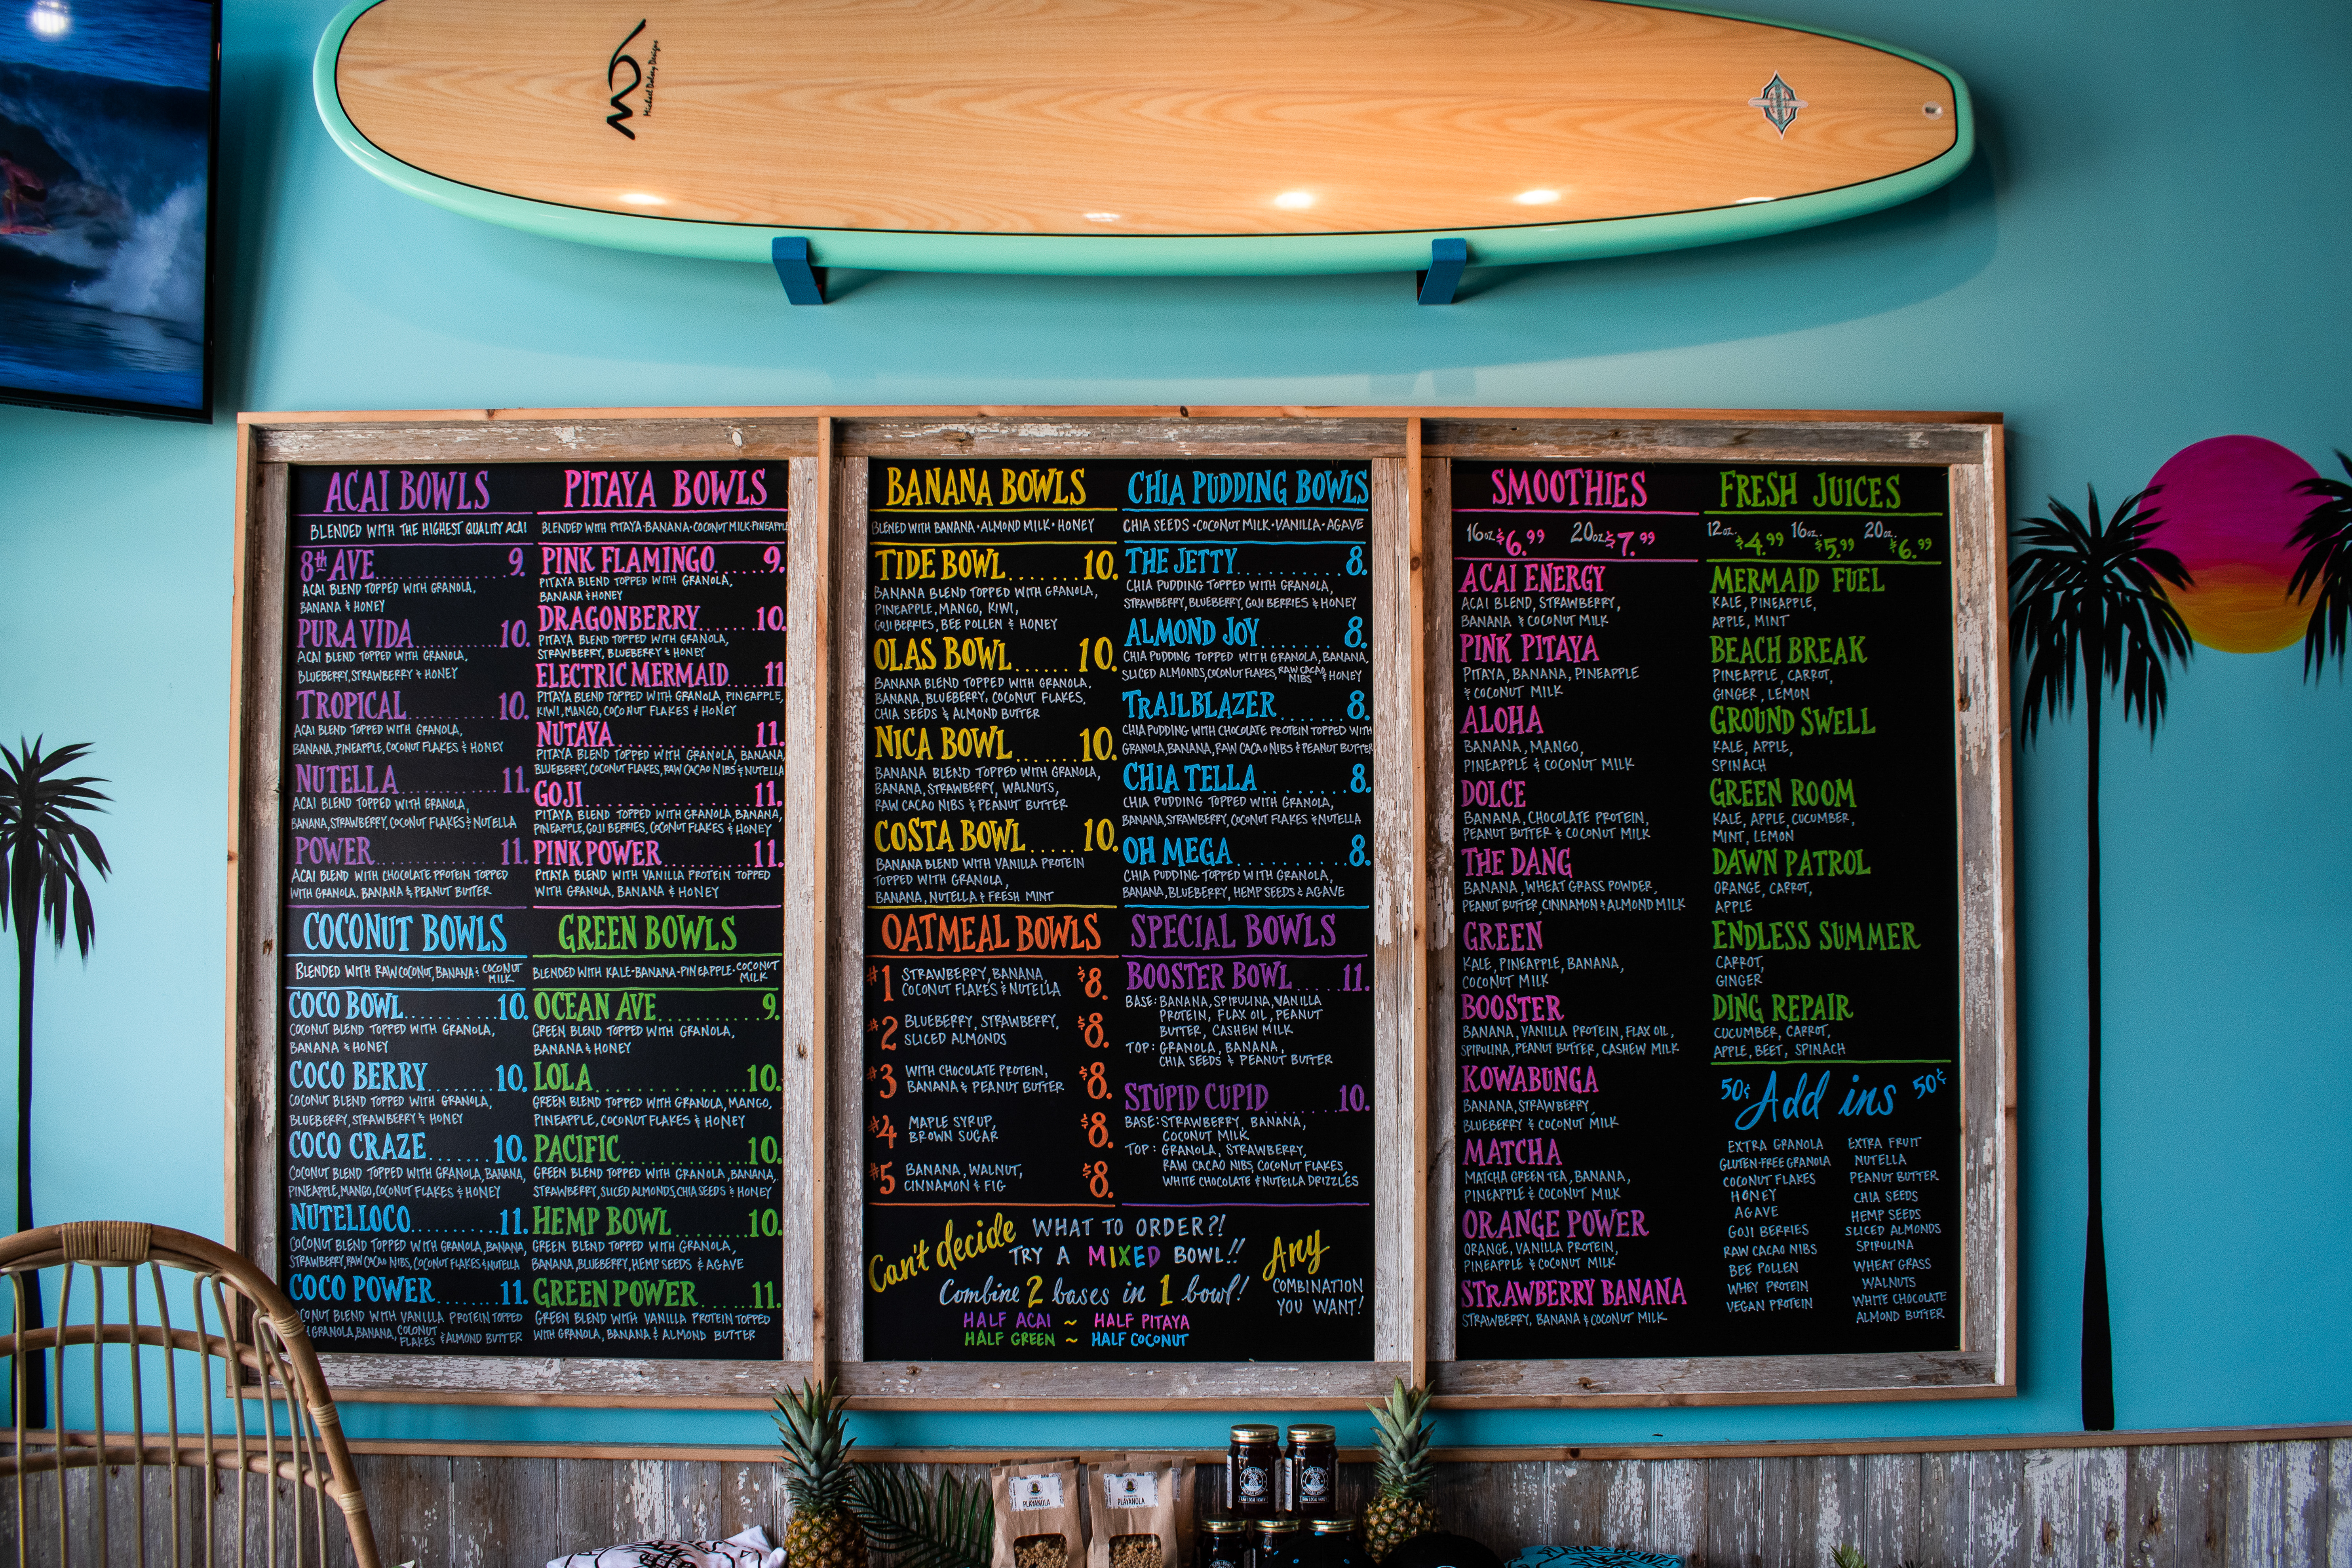 Michael Dolsey Designs
ACAI BOWLS
BLENDED WITH THE HIGHEST QUALITY ACAI
8th AVE 9.
ACAI BLEND TOPPED WITH GRANOLA,
BANANA & HONEY
PURA VIDA 10.
ACAI BLEND TOPPED WITH GRANOLA,
BLUEBERRY, STRAWBERRY & HONEY
TROPICAL 10.
ACAI BLEND TOPPED WITH GRANOLA,
BANANA, PINEAPPLE, COCONUT FLAKES & HONEY
NUTELLA 11.
ACAI BLEND TOPPED WITH GRANOLA,
BANANA, STRAWBERRY, COCONUT FLAKES & NUTELLA
POWER 11.
ACAI BLEND WITH CHOCOLATE PROTEIN TOPPED
WITH GRANOLA, BANANA & PEANUT BUTTER
COCONUT BOWLS
BLENDED WITH RAW COCONUT, BANANA & COCONUT MILK
COCO BOWL 10.
COCONUT BLEND TOPPED WITH GRANOLA,
BANANA & HONEY
COCO BERRY 10.
COCONUT BLEND TOPPED WITH GRANOLA,
BLUEBERRY, STRAWBERRY & HONEY
COCO CRAZE 10.
COCONUT BLEND TOPPED WITH GRANOLA, BANANA,
PINEAPPLE, MANGO, COCONUT FLAKES & HONEY
NUTELLOCO 11.
COCONUT BLEND TOPPED WITH GRANOLA, BANANA,
STRAWBERRY, RAW CACAO NIBS, COCONUT FLAKES & NUTELLA
COCO POWER 11.
CONUT BLEND WITH VANILLA PROTEIN TOPPED
GRANOLA, BANANA, COCONUT FLAKES & ALMOND BUTTER
PITAYA BOWLS
BLENDED WITH PITAYA·BANANA·COCONUT MILK·PINEAPPLE
PINK FLAMINGO 9.
PITAYA BLEND TOPPED WITH GRANOLA,
BANANA & HONEY
DRAGONBERRY 10.
PITAYA BLEND TOPPED WITH GRANOLA,
STRAWBERRY, BLUEBERRY & HONEY
ELECTRIC MERMAID 11.
PITAYA BLEND TOPPED WITH GRANOLA, PINEAPPLE,
KIWI, MANGO, COCONUT FLAKES & HONEY
NUTAYA 11.
PITAYA BLEND TOPPED WITH GRANOLA, BANANA,
BLUEBERRY, COCONUT FLAKES, RAW CACAO NIBS & NUTELLA
GOJI 11.
PITAYA BLEND TOPPED WITH GRANOLA, BANANA,
PINEAPPLE, GOJI BERRIES, COCONUT FLAKES & HONEY
PINK POWER 11.
PITAYA BLEND WITH VANILLA PROTEIN TOPPED
WITH GRANOLA, BANANA & HONEY
GREEN BOWLS
BLENDED WITH KALE·BANANA·PINEAPPLE·COCONUT MILK
OCEAN AVE 9.
GREEN BLEND TOPPED WITH GRANOLA,
BANANA & HONEY
LOLA 10.
GREEN BLEND TOPPED WITH GRANOLA, MANGO,
PINEAPPLE, COCONUT FLAKES & HONEY
PACIFIC 10.
GREEN BLEND TOPPED WITH GRANOLA, BANANA,
STRAWBERRY, SLICED ALMONDS, CHIA SEEDS & HONEY
HEMP BOWL 10.
GREEN BLEND TOPPED WITH GRANOLA,
BANANA, BLUEBERRY, HEMP SEEDS & AGAVE
GREEN POWER 11.
GREEN BLEND WITH VANILLA PROTEIN TOPPED
WITH GRANOLA, BANANA & ALMOND BUTTER
BANANA BOWLS
BLENED WITH BANANA·ALMOND MILK·HONEY
TIDE BOWL 10.
BANANA BLEND TOPPED WITH GRANOLA,
PINEAPPLE, MANGO, KIWI,
GOJI BERRIES, BEE POLLEN & HONEY
OLAS BOWL 10.
BANANA BLEND TOPPED WITH GRANOLA,
BANANA, BLUEBERRY, COCONUT FLAKES,
CHIA SEEDS & ALMOND BUTTER
NICA BOWL 10.
BANANA BLEND TOPPED WITH GRANOLA,
BANANA, STRAWBERRY, WALNUTS,
RAW CACAO NIBS & PEANUT BUTTER
COSTA BOWL 10.
BANANA BLEND WITH VANILLA PROTEIN
TOPPED WITH GRANOLA,
BANANA, NUTELLA & FRESH MINT
OATMEAL BOWLS
#1 STRAWBERRY, BANANA, $8.
COCONUT FLAKES & NUTELLA
#2 BLUEBERRY, STRAWBERRY, $8.
SLICED ALMONDS
#3 WITH CHOCOLATE PROTEIN, $8.
BANANA & PEANUT BUTTER
#4 MAPLE SYRUP, $8.
BROWN SUGAR
#5 BANANA, WALNUT, $8.
CINNAMON & FIG
CHIA PUDDING BOWLS
CHIA SEEDS·COCONUT MILK·VANILLA·AGAVE
THE JETTY 8.
CHIA PUDDING TOPPED WITH GRANOLA,
STRAWBERRY, BLUEBERRY, GOJI BERRIES & HONEY
ALMOND JOY 8.
CHIA PUDDING TOPPED WITH GRANOLA, BANANA,
SLICED ALMONDS, COCONUT FLAKES, RAW CACAO NIBS & HONEY
TRAILBLAZER 8.
CHIA PUDDING WITH CHOCOLATE PROTEIN TOPPED WITH
GRANOLA, BANANA, RAW CACAO NIBS & PEANUT BUTTER
CHIA TELLA 8.
CHIA PUDDING TOPPED WITH GRANOLA,
BANANA, STRAWBERRY, COCONUT FLAKES & NUTELLA
OH MEGA 8.
CHIA PUDDING TOPPED WITH GRANOLA,
BANANA, BLUEBERRY, HEMP SEEDS & AGAVE
SPECIAL BOWLS
BOOSTER BOWL 11.
BASE: BANANA, SPIRULINA, VANILLA
PROTEIN, FLAX OIL, PEANUT
BUTTER, CASHEW MILK
TOP: GRANOLA, BANANA,
CHIA SEEDS & PEANUT BUTTER
STUPID CUPID 10.
BASE: STRAWBERRY, BANANA,
COCONUT MILK
TOP: GRANOLA, STRAWBERRY,
RAW CACAO NIBS, COCONUT FLAKES,
WHITE CHOCOLATE & NUTELLA DRIZZLES
Can't decide WHAT TO ORDER?!
TRY A MIXED BOWL!!
Combine 2 bases in 1 bowl!
Any COMBINATION
YOU WANT!
HALF ACAI ~ HALF PITAYA
HALF GREEN ~ HALF COCONUT
SMOOTHIES
16oz $6.99 20oz $7.99
ACAI ENERGY
ACAI BLEND, STRAWBERRY,
BANANA & COCONUT MILK
PINK PITAYA
PITAYA, BANANA, PINEAPPLE
& COCONUT MILK
ALOHA
BANANA, MANGO,
PINEAPPLE & COCONUT MILK
DOLCE
BANANA, CHOCOLATE PROTEIN,
PEANUT BUTTER & COCONUT MILK
THE DANG
BANANA, WHEAT GRASS POWDER,
PEANUT BUTTER, CINNAMON & ALMOND MILK
GREEN
KALE, PINEAPPLE, BANANA,
COCONUT MILK
BOOSTER
BANANA, VANILLA PROTEIN, FLAX OIL,
SPIRULINA, PEANUT BUTTER, CASHEW MILK
KOWABUNGA
BANANA, STRAWBERRY,
BLUEBERRY & COCONUT MILK
MATCHA
MATCHA GREEN TEA, BANANA,
PINEAPPLE & COCONUT MILK
ORANGE POWER
ORANGE, VANILLA PROTEIN,
PINEAPPLE & COCONUT MILK
STRAWBERRY BANANA
STRAWBERRY, BANANA & COCONUT MILK
FRESH JUICES
12oz. $4.99 16oz. $5.99 20oz. $6.99
MERMAID FUEL
KALE, PINEAPPLE,
APPLE, MINT
BEACH BREAK
PINEAPPLE, CARROT,
GINGER, LEMON
GROUND SWELL
KALE, APPLE,
SPINACH
GREEN ROOM
KALE, APPLE, CUCUMBER,
MINT, LEMON
DAWN PATROL
ORANGE, CARROT,
APPLE
ENDLESS SUMMER
CARROT,
GINGER
DING REPAIR
CUCUMBER, CARROT,
APPLE, BEET, SPINACH
50¢ Add ins 50¢
EXTRA GRANOLA
GLUTEN-FREE GRANOLA
COCONUT FLAKES
HONEY
AGAVE
GOJI BERRIES
RAW CACAO NIBS
BEE POLLEN
WHEY PROTEIN
VEGAN PROTEIN
EXTRA FRUIT
NUTELLA
PEANUT BUTTER
CHIA SEEDS
HEMP SEEDS
SLICED ALMONDS
SPIRULINA
WHEAT GRASS
WALNUTS
WHITE CHOCOLATE
ALMOND BUTTER
PLAYANOLA
PLAYANOLA